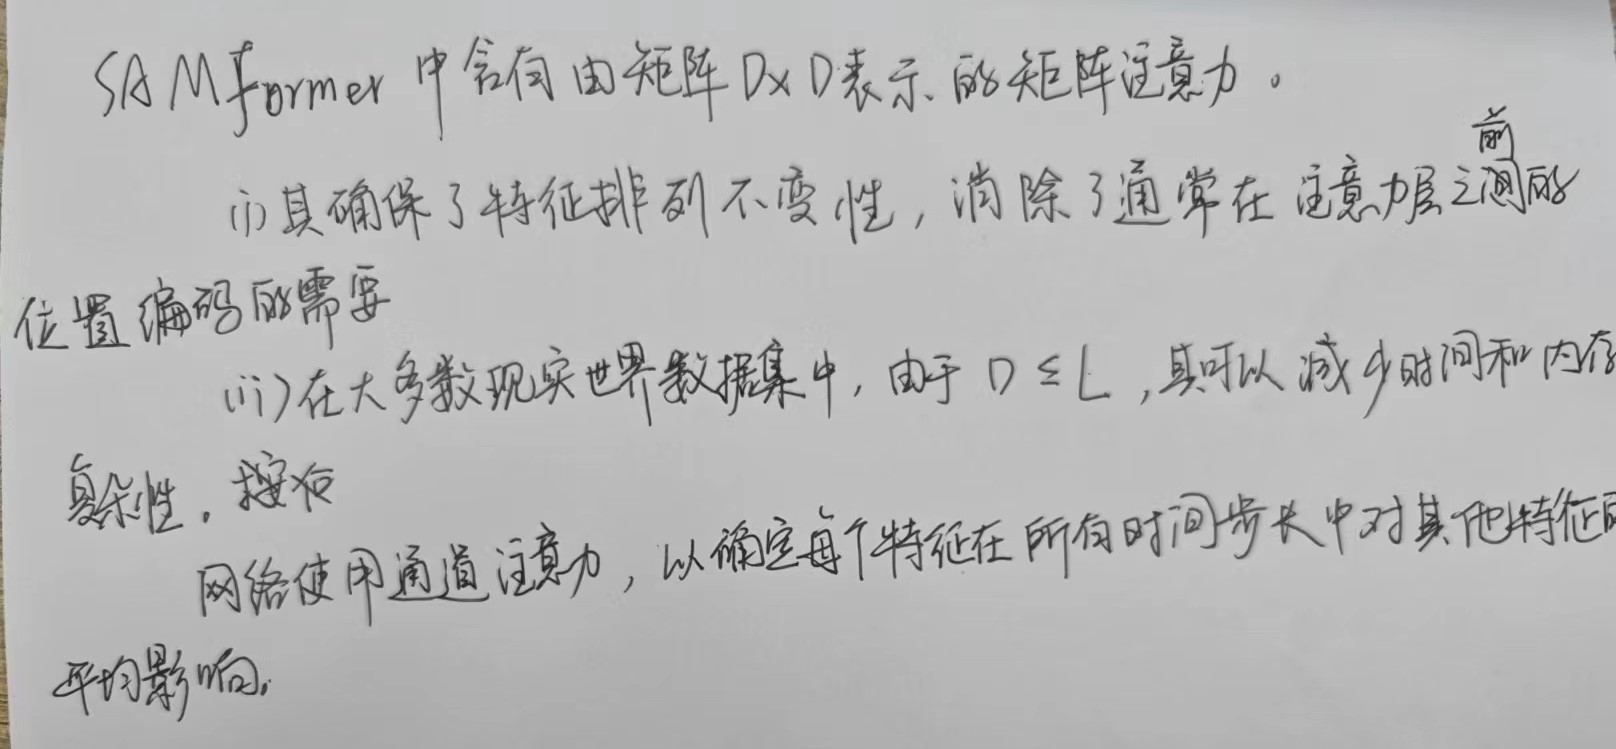 SAMformer 中含有由矩阵 D×D表示的矩阵注意力。
(i)其确保了特征排列不变性，消除了通常在注意力层之前的
位置编码的需要
(ii)在大多数现实世界数据集中，由于 D≤L，其可以减少时间和内存
复杂性。接着
网络使用通道注意力，以确定每个特征在所有时间步长中对其他特征的
平均影响。